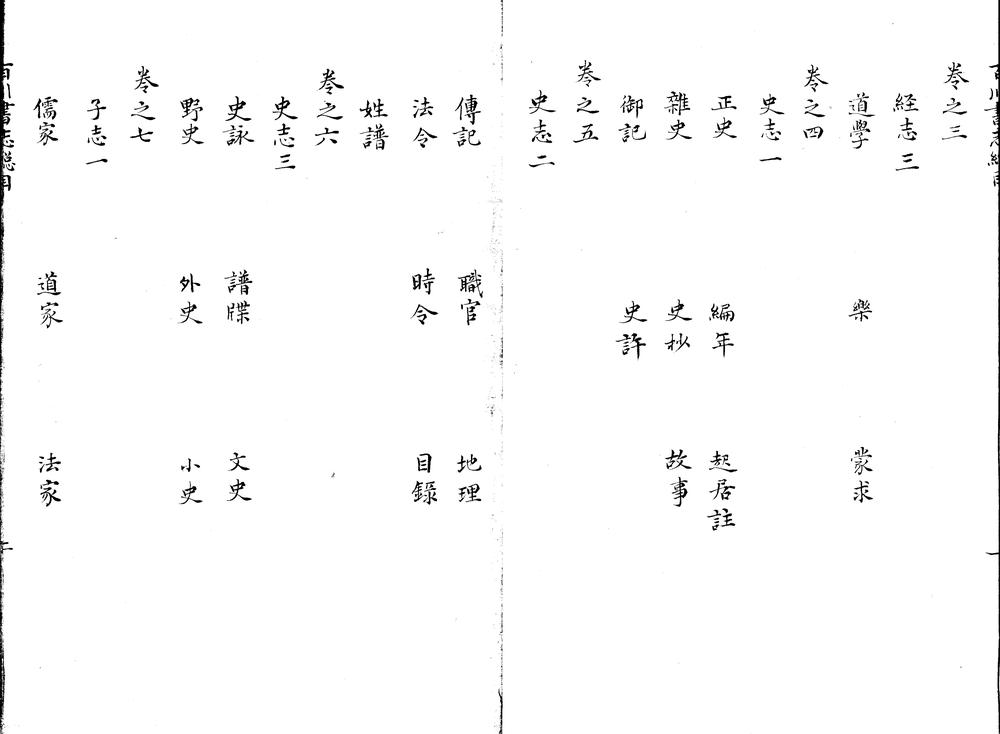 卷之三
経志三
道學　樂　蒙求
卷之四
史志一
正史　編年　起居註
雜史　史抄　故事
御記　史評
卷之五
史志二
傳記　職官　地理
法令　時令　目錄
姓譜
卷之六
史志三
史詠　譜牒　文史
野史　外史　小史
卷之七
子志一
儒家　道家　法家